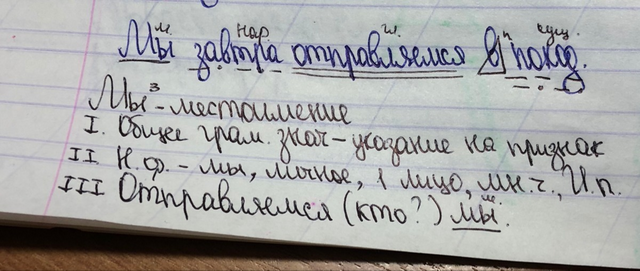 м. нар. гл. п сущ.
Мы завтра отправляемся в поход.
Мы³ - местоимение
I. Общее грам. знач - указание на признак
II Н.ф. - мы, личное, 1 лицо, мн.ч., И.п.
III Отправляемся (кто?) мы.